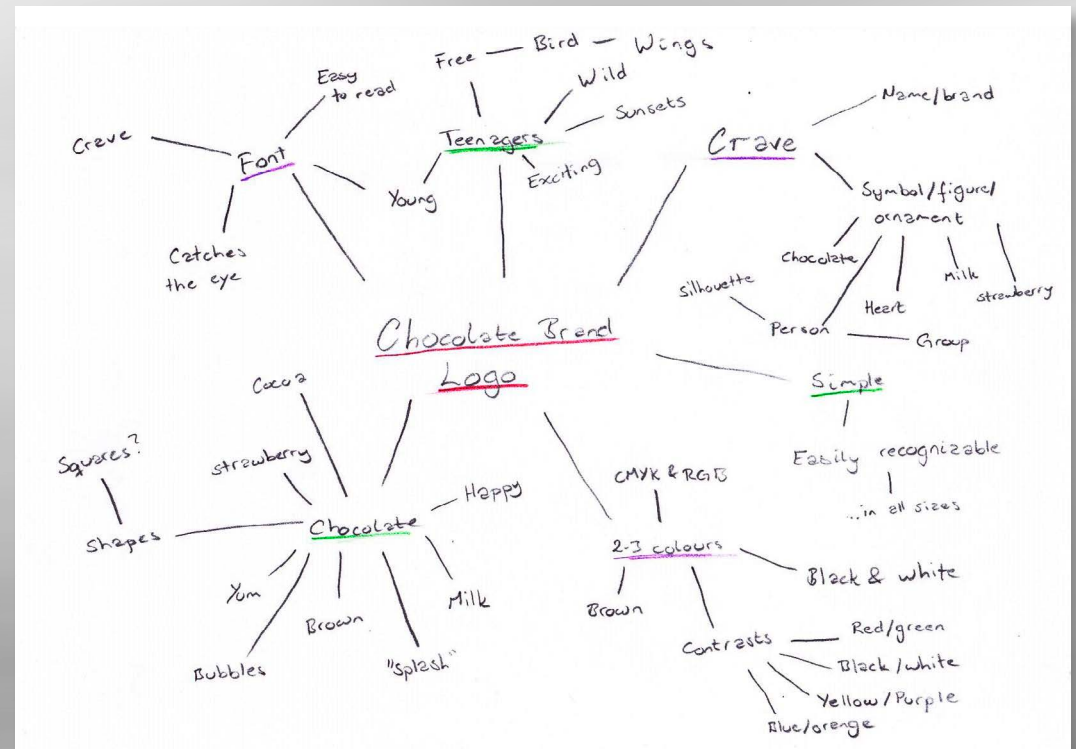 Chocolate Brand
Logo
Font
Crave
Easy
to read
Catches
the eye
Young
Teenagers
Free
Bird
Wings
Wild
Sunsets
Exciting
Crave
Name/brand
Symbol/figure/
ornament
Chocolate
Person
Silhouette
Group
Heart
Milk
strawberry
Simple
Easily recognizable
...in all sizes
2-3 colours
CMYK & RGB
Black & white
Brown
Contrasts
Red/green
Black/white
Yellow/Purple
Blue/orange
Chocolate
Cocoa
strawberry
Happy
Shapes
Squares?
Yum
Bubbles
Brown
"Splash"
Milk